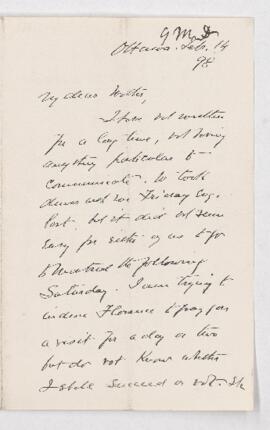 G M D
Ottawa. Feb. 14
98
My dear Mother,
I have not written
for a long time, not having
anything particular to
Communicate. We took
down and on Friday Eve.
last. but it did not seem
easy for either of us to go
to Montreal the following
Saturday. I am trying to
induce Florence to pay you
a visit for a day or two
but do not know whether
I shall succeed or not. She